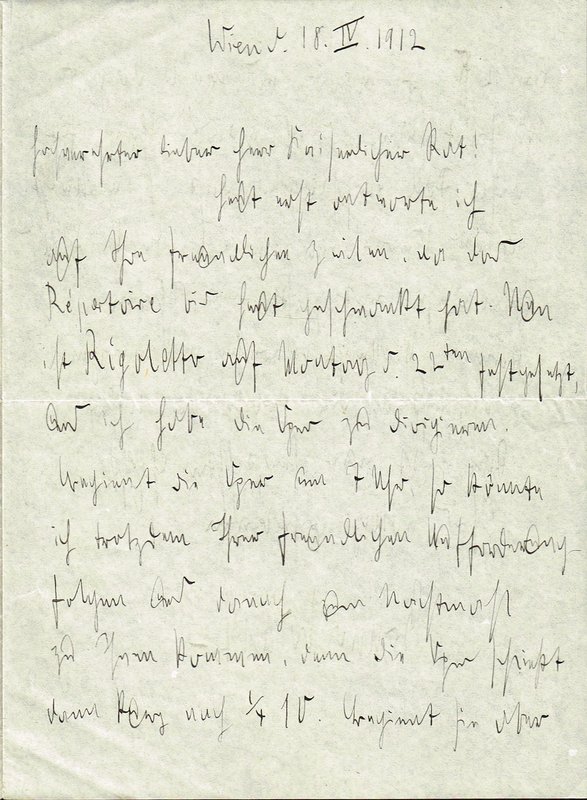 Wien d. 18. IV. 1912
Hochverehrter lieber Herr Kaiserlicher Rat!
Heut erst antworte ich
auf Ihre freundlichen Zeilen, da das
Repertoire bis heut geschwankt hat. Nun
ist Rigoletto auf Montag d. 22ten festgesetzt
und ich habe die Oper zu dirigieren.
Beginnt die Oper um 7 Uhr, so könnte
ich trotzdem Ihrer freundlichen Aufforderung
folgen und danach zum Nachtmahl
zu Ihnen kommen, denn die Oper schließt
dann kurz nach ¼ 10. Beginnt sie aber